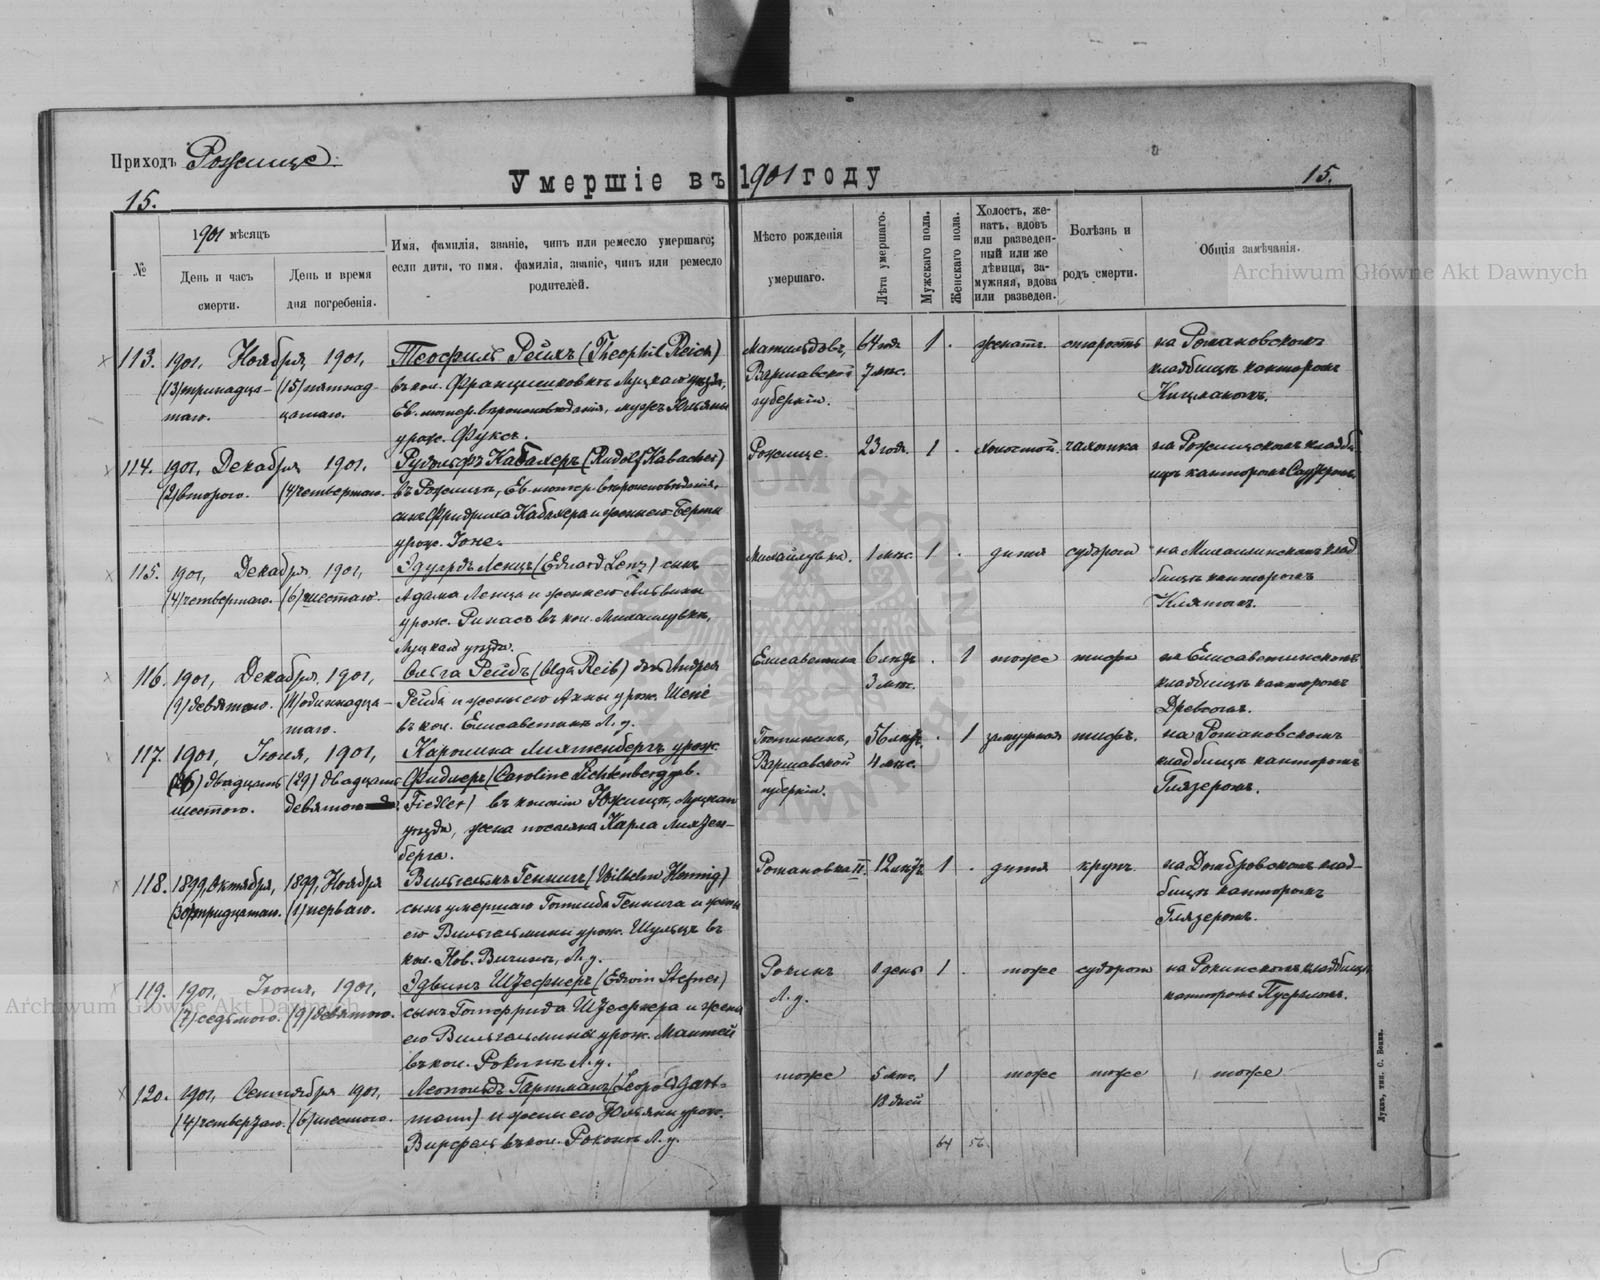 Приходъ Рожище.
Умершіе въ 1901 году
15.
15.
№
1901 мѣсяцъ
День и часъ
смерти.
День и время
дня погребенія.
Имя, фамилія, званіе, чинъ или ремесло умершаго;
если дитя, то имя, фамилія, званіе, чинъ или ремесло
родителей.
Мѣсто рожденія
умершаго.
Лѣта умершаго.
Мужскаго пола.
Женскаго пола.
Холостъ, же-
натъ, вдовъ
или разведен-
ный или же
дѣвица, за-
мужняя, вдова
или разведен.
Болѣзнь и
родъ смерти.
Общія замѣчанія.
Archiwum Główne Akt Dawnych
113. 1901, Ноября, 1901, Теофилъ Рейхъ (Theophil Reich) 64 1 женатъ старость на Романовскомъ
(13) тринадца- (15) пятнад- въ кол. Луцкаго уѣзда, Варшавской 7 мѣс. кладбищѣ канторомъ
таго. цатаго. Ев. лютер. вѣроисповѣданія, мужъ Юльяны губерніи.
урож. Фуксъ.
114. 1901, Декабря, 1901, Рудольфъ Кабахеръ (Rudolf Kabacher) Рожище. 23 года. 1 холостой. чахотка на Рожищскомъ кладби-
(2) второго. (4) четвертаго. въ Рожищѣ, Ев. лютер. вѣроисповѣданія, щѣ канторомъ
сынъ Фридриха Кабахера и жены его Берты
урож.
115. 1901, Декабря, 1901, Эдуардъ Ленцъ (Eduard Lenz) сынъ Михайлувка. 1 мѣс. 1 дитя судороги на Михалинскомъ клад-
(4) четвертаго. (6) шестаго. Адама Ленца и жены его бищѣ канторомъ
урож. Ринасъ въ кол.
Луцкаго уѣзда.
116. 1901, Декабря, 1901, Ольга Рейбъ (Olga Reib) дочь Андрея Елисаветинка 6 лѣтъ 1 тоже тифъ на Елисаветинскомъ
(9) девятаго. (11) одиннадца- Рейба и жены его Анны урож. 3 мѣс. кладбищѣ канторомъ
таго. въ кол. Елисаветинъ Л. у.
117. 1901, Іюня, 1901, Каролина Лихтенбергъ урож. 56 лѣтъ 1 замужняя тифъ. на Романовскомъ
(26) двадцать (29) двадцать Фидлеръ (Caroline Lichtenberg geb. Варшавской 4 мѣс. кладбищѣ канторомъ
шестого. девятого Fiedler) въ колоніи Луцкаго губерніи. Глязеромъ.
уѣзда, жена поселяна Карла Лихтен-
берга.
118. 1899, Октября, 1899, Ноября Вильгельмъ Геннигъ (Wilhelm Hennig) Романовка II. 12 лѣтъ 1 дитя крупъ. на Домбровскомъ клад-
(30) тридцатаго. (1) перваго. сынъ умершаго Готлиба Геннига и жены бищѣ канторомъ
его Вильгельмины урож. Шульцъ въ Глязеромъ.
кол. Нов. Л. у.
119. 1901, Іюня, 1901, Эдвинъ Штефнеръ (Edwin Stefner) Рокинъ 1 день 1 тоже судороги на Рокинскомъ кладбищѣ
(7) седьмого. (9) девятого. сынъ Готфрида Штефнера и жены Л. у. канторомъ
его Вильгельмины урож. Мантей
въ кол. Рокинъ Л. у.
120. 1901, Сентября 1901, Леопольдъ Гартманъ (Leopold Gart- тоже 5 мѣс. 1 тоже тоже тоже
(4) четвертаго. (6) шестого. mann) и жены его Юльяны урож. 13 дней
въ кол. Рокинъ Л. у.
64 56
Луцкъ, тип. С. Бокка.
Archiwum Główne Akt Dawnych